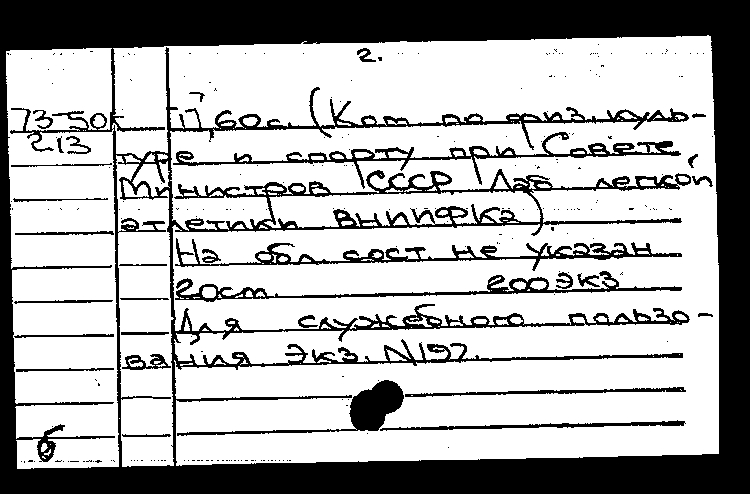 2.
73-50к [1], 60 с. (Ком. по физ. куль-
213
туре и спорту при Совете
Министров СССР. Лаб. легкой
атлетики ВНИИФКа).
На обл. сост. не указан
20 см. 200 экз
Для служебного пользо-
вания Экз. N 197.
б